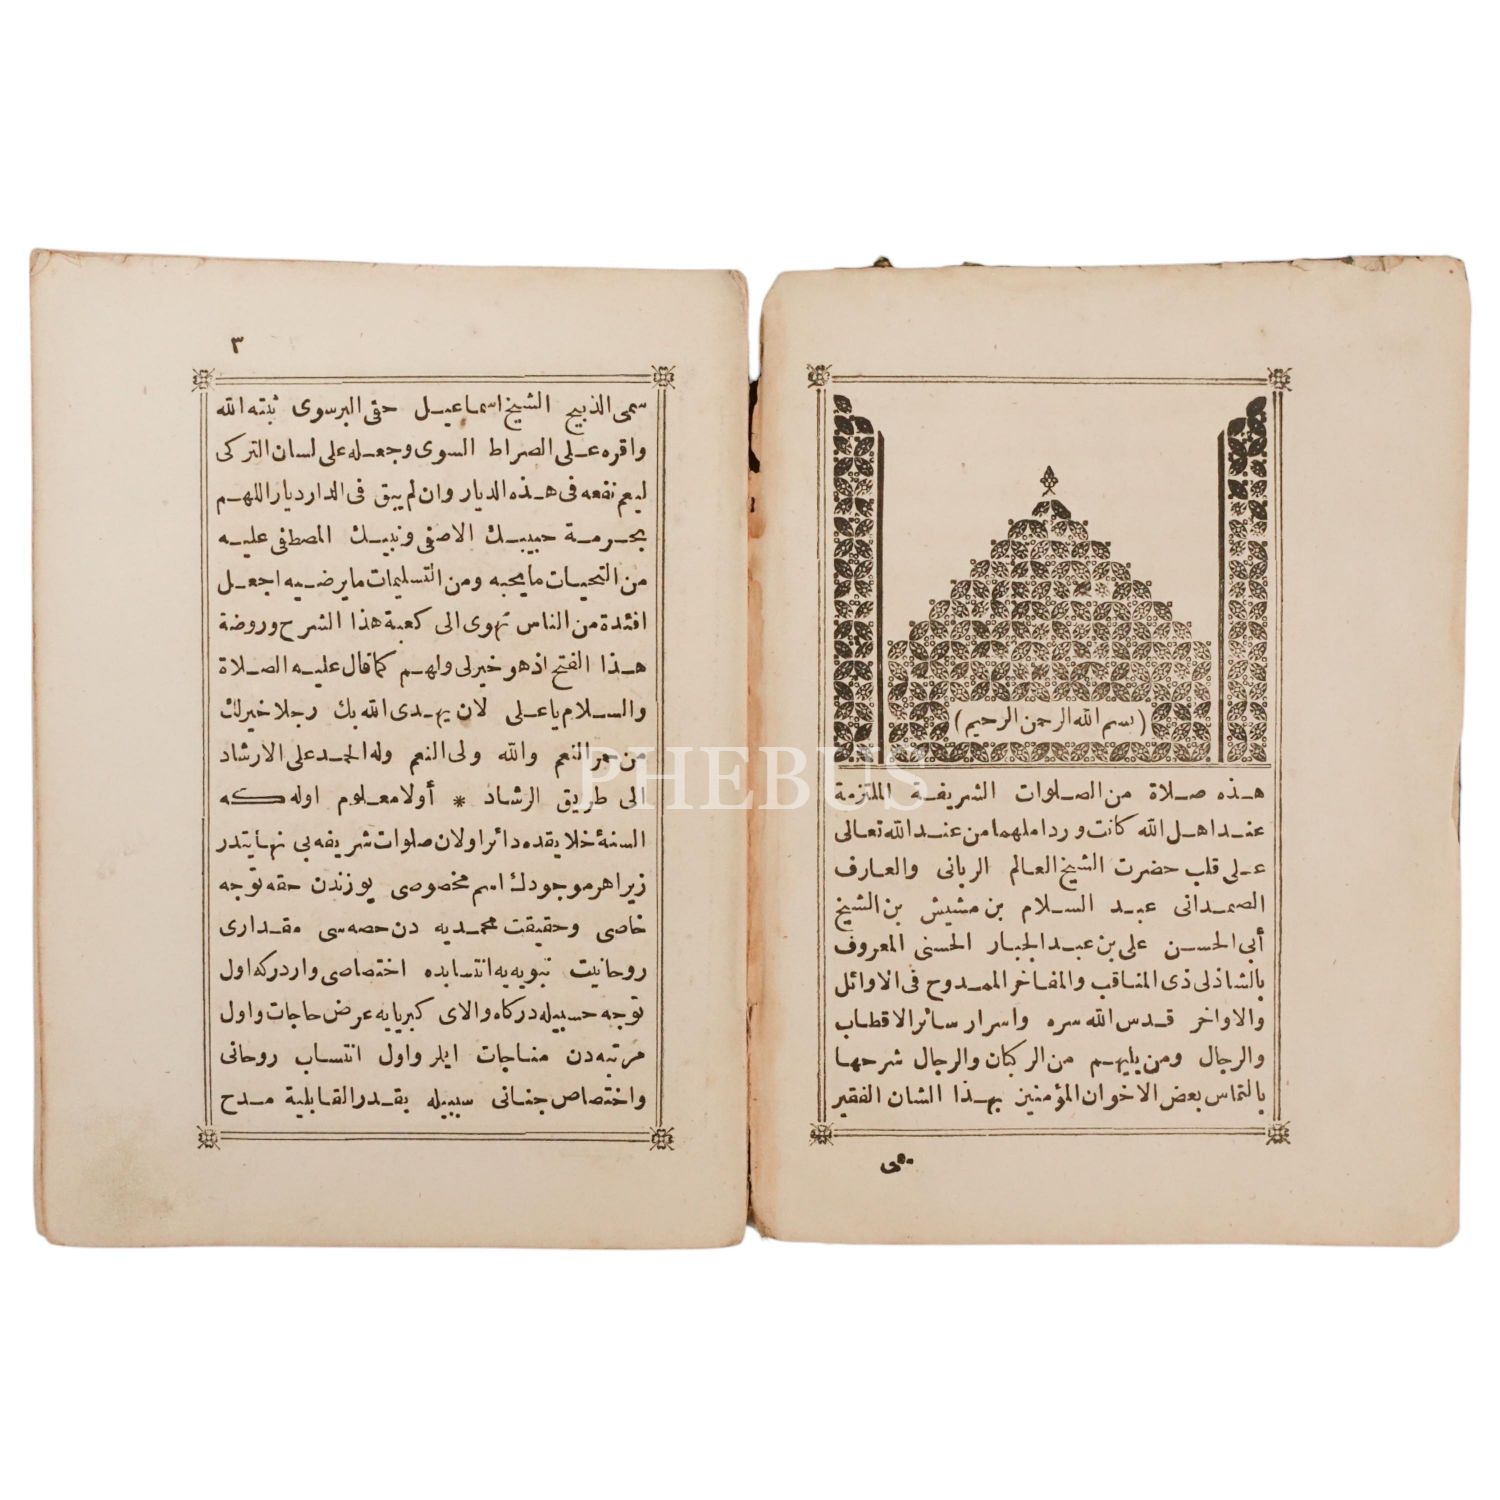 (بسم الله الرحمن الرحيم)
هذه صلاة من الصلوات الشريفة الملتزمة
عند اهل الله كانت وردا ملهما من عند الله تعالى
على قلب حضرت الشيخ العالم الربانى والعارف
الصمدانى عبد السلام بن مشيش بن الشيخ
أبى الحسن على بن عبد الجبار الحسنى المعروف
بالشاذلى ذى المناقب والمفاخر الممدوح فى الاوائل
والاواخر قدس الله سره واسرار سائر الاقطاب
والرجال ومن يليهم من الركبان والرجال شرحها
بالتماس بعض الاخوان المؤمنين بهذا الشان الفقير
٣
سمى الذبيح الشيخ اسماعيل حقى البرسوى ثبته الله
واقره على الصراط السوى وجعله على لسان التركى
ليعم نفعه فى هذه الديار وان لم يبق فى الدار ديار اللهم
بحرمة حبيبك الاصفى ونبيك المصطفى عليه
من التحيات ما يحبه ومن التسليمات ما يرضيه اجعل
افئدة من الناس تهوى الى كعبة هذا الشرح وروضة
هذا الفتح اذ هو خير لى ولهم كما قال عليه الصلاة
والسلام يا على لان يهدى الله بك رجلا خير لك
من حمر النعم والله ولى النعم وله الحمد على الارشاد
الى طريق الرشاد * أولا معلوم اوله كه
السنۀ خلايقده دائر اولان صلوات شريفه بى نهايتدر
زيرا هر موجودك اسم مخصوصى يوزندن حقه توجه
خاصى وحقيقت محمديه دن حصه سى مقدارى
روحانيت نبويه يه انتسابده اختصاصى واردر كه اول
توجه حسبيله دركاه والاى كبريايه عرض حاجات واول
مرتبه دن مناجات ايلر واول انتساب روحانى
واختصاص جنانى سببيله بقدر القابلية مدح
PHEBUS